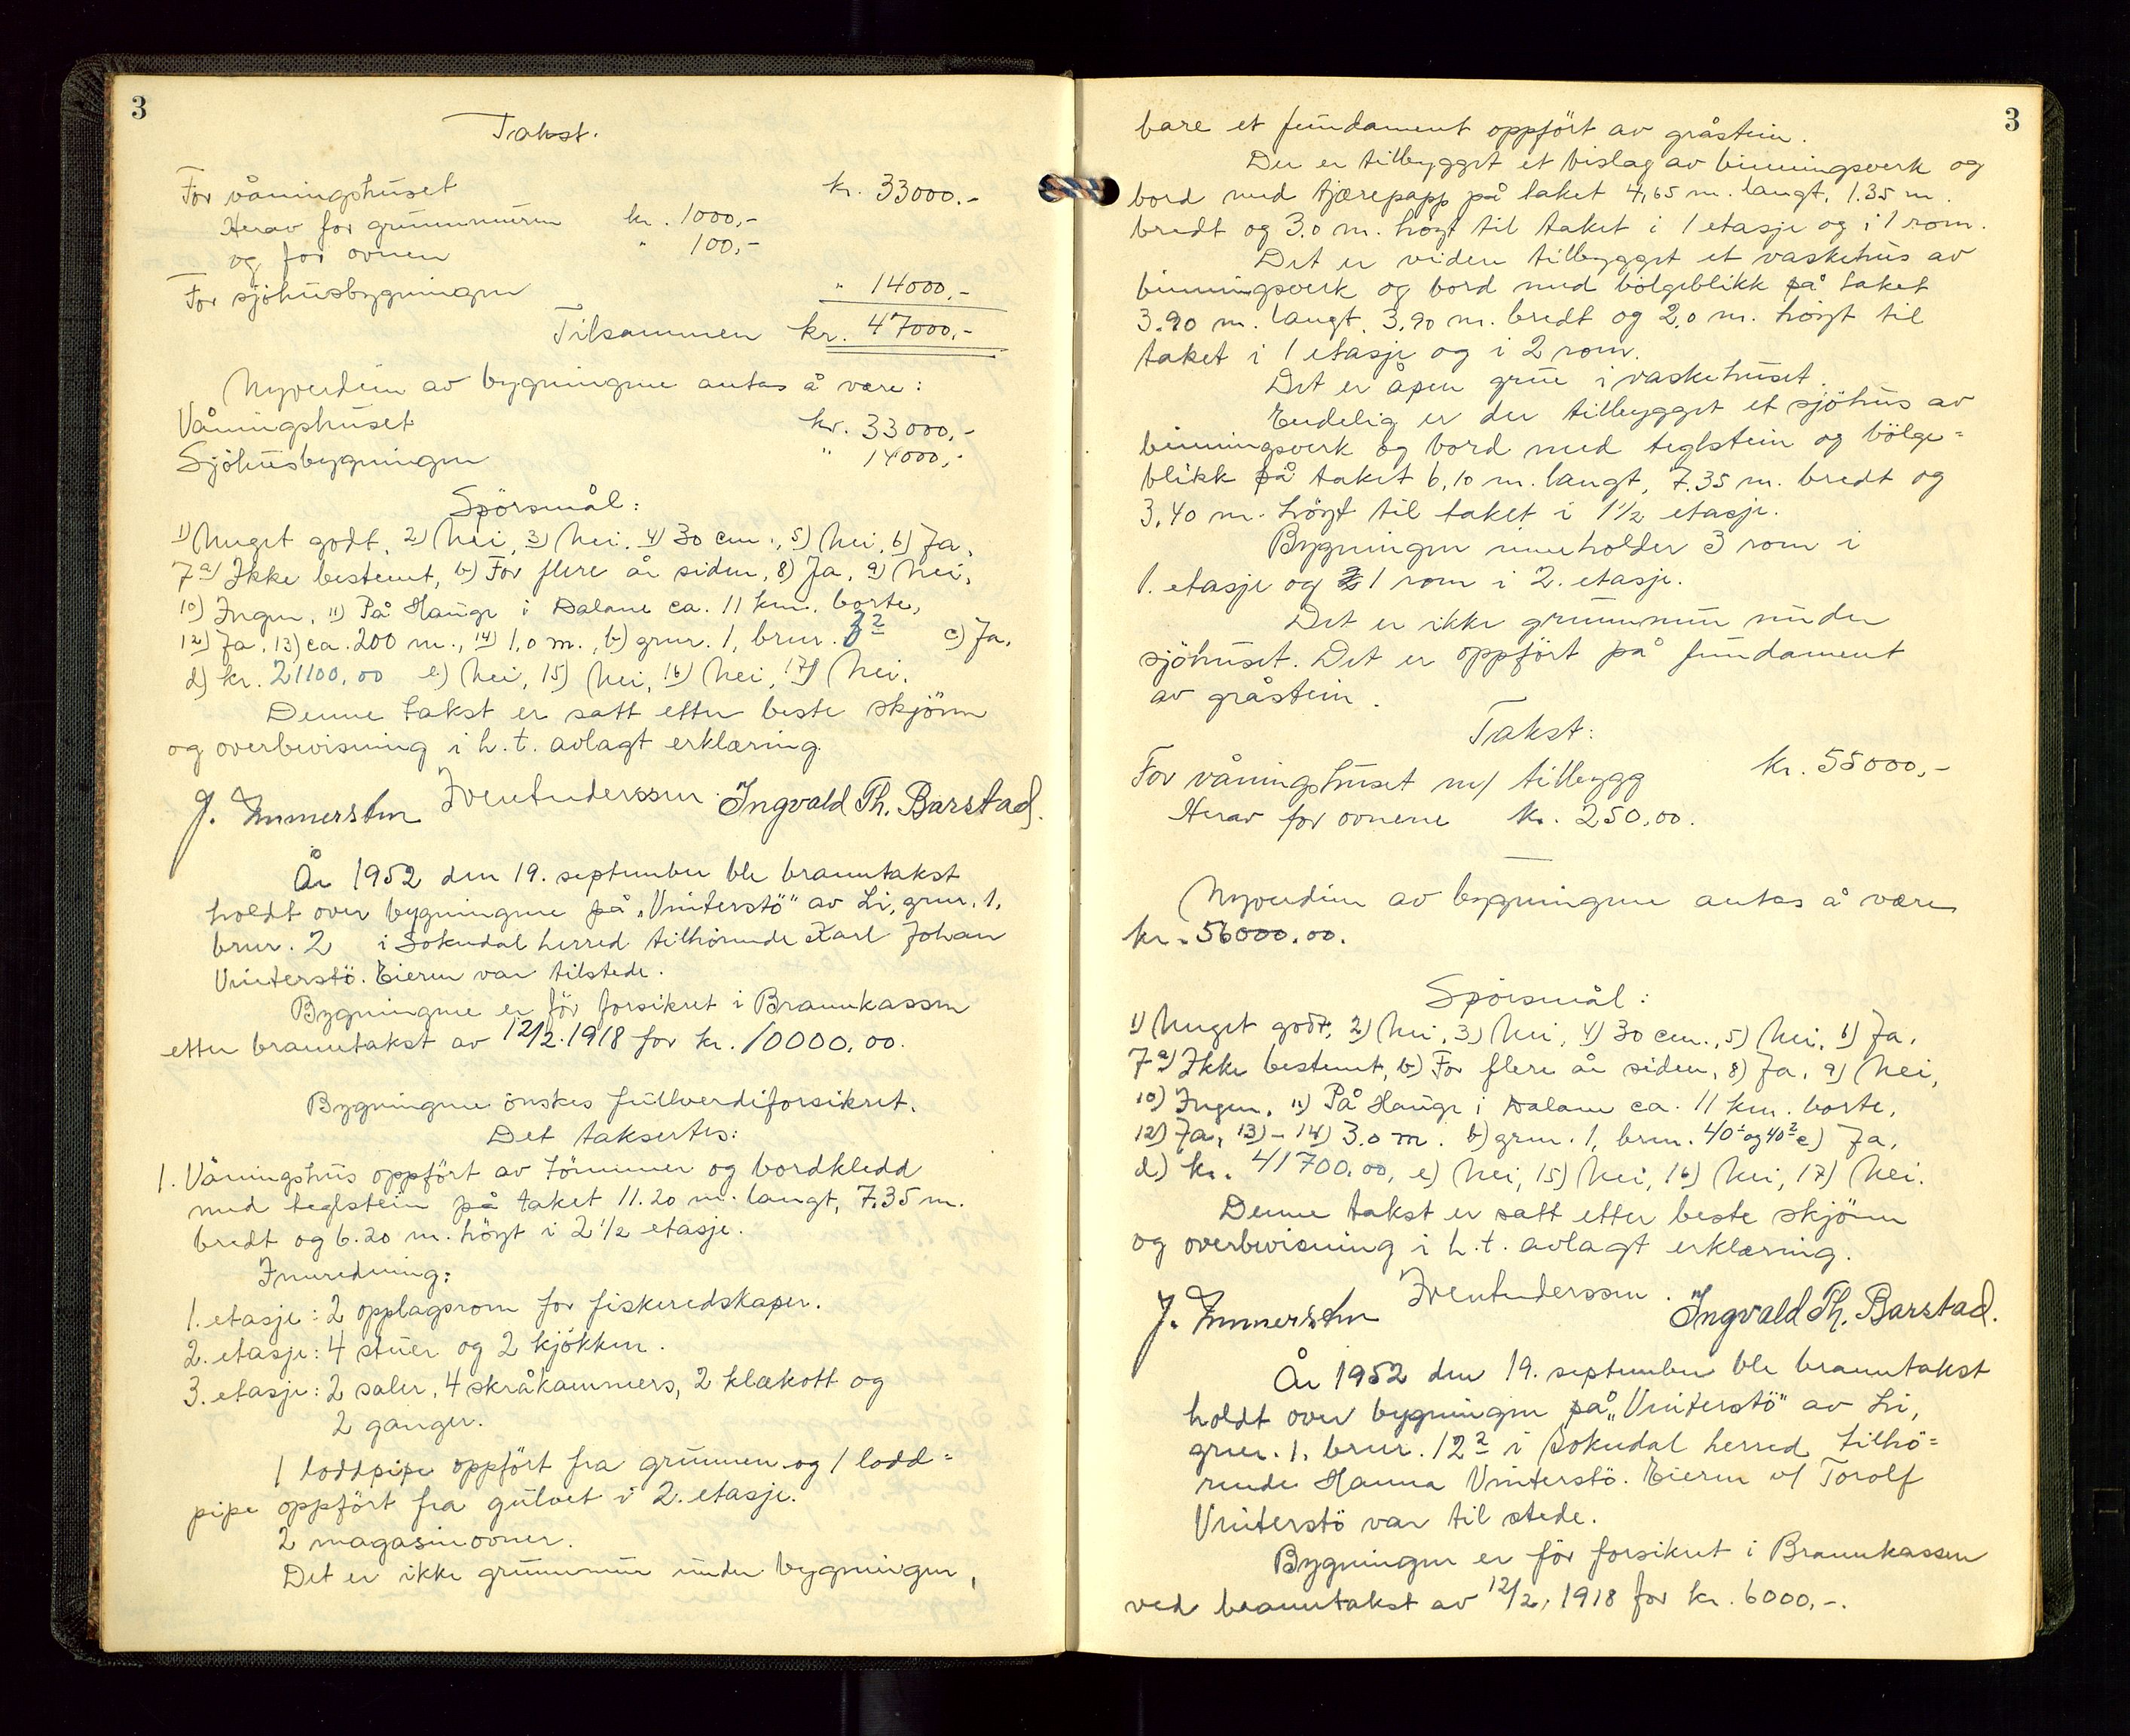 3
Takst.
For våningshuset kr. 33000.-
Herav for grunnmuren kr. 1000,-
og for ovnen " 100,-
For sjøhusbygningen " 14000,-
Tilsammen kr. 47000,-
Nyverdien av bygningene antas å være:
Våningshuset kr. 33000,-
Sjöhusbygningen " 14000,-
Spörsmål:
1) Meget godt, 2) Nei, 3) Nei, 4) 30 cm., 5) Nei, 6) Ja,
7a) Ikke bestemt, b) For flere år siden, 8) Ja, 9) Nei,
10) Ingen, 11) På Hauge i Dalane ca. 11 km. borte,
12) Ja, 13) ca. 200 m., 14) 1,0 m., b) gnr. 1, bnr. c) Ja,
d) kr. 21100,00 e) Nei, 15) Nei, 16) Nei, 17) Nei.
Denne takst er satt etter beste skjönn
og overbevisning i h.t. avlagt erklæring.
Ingvald Th. Barstad.
År 1952 den 19. september ble branntakst
holdt over bygningene på "Vinterstö" av Li, gnr. 1,
bnr. 2 i Sokndal herred tilhörende Karl Johan
Vinterstö. Eieren var tilstede.
Bygningene er för forsikret i Brannkassen
etter branntakst av 12/2.1918 for kr. 10000,00.
Bygningene önskes fullverdiforsikret.
Det taksertes:
1. Våningshus oppfört av tömmer og bordkledd
med teglstein på taket 11.20 m. langt, 7.35 m.
bredt og 6.20 m. höyt i 2 1/2 etasje.
Innredning:
1. etasje: 2 opplagsrom for fiskeredskaper.
2. etasje: 4 stuer og 2 kjökken.
3. etasje: 2 saler, 4 skråkammers, 2 klækott og
2 ganger.
1 loddpipe oppfört fra grunnen og 1 lodd=
pipe oppfört fra gulvet i 2. etasje.
2 magasinovner.
Det er ikke grunnmur under bygningen,
3
bare et fundament oppfört av gråstein.
Der er tilbygget et bislag av binningsverk og
bord med tjærepapp på taket 4,65 m. langt, 1.35 m.
bredt og 3.0 m. höyt til taket i 1 etasje og i 1 rom.
Det er videre tilbygget et vaskehus av
binningsverk og bord med bölgeblikk på taket
3.90 m. langt, 3,90 m. bredt og 2,0 m. höyt til
taket i 1 etasje og i 2 rom.
Det er åpen grue i vaskehuset.
Endelig er der tilbygget et sjöhus av
binningsverk og bord med teglstein og bölge=
blikk på taket 6,10 m. langt, 7.35 m. bredt og
3,40 m. höyt til taket i 1 1/2 etasje.
Bygningen inneholder 3 rom i
1. etasje og 1 rom i 2. etasje.
Det er ikke grunnmur under
sjöhuset. Det er oppfört på fundament
av gråstein.
Takst:
For våningshuset m/ tilbygg kr. 55000,-
Herav for ovnene kr. 250,00.
Nyverdien av bygningene antas å være
kr. 56000.00.
Spörsmål:
1) Meget godt, 2) Nei, 3) Nei, 4) 30 cm., 5) Nei, 6) Ja,
7a) Ikke bestemt, b) For flere år siden, 8) Ja, 9) Nei,
10) Ingen, 11) På Hauge i Dalane ca. 11 km. borte,
12) Ja, 13) - 14) 3.0 m. b) gnr. 1, bnr. c) Ja,
d) kr. 41700,00, e) Nei, 15) Nei, 16) Nei, 17) Nei.
Denne takst er satt etter beste skjönn
og overbevisning i h.t. avlagt erklæring.
Ingvald Th. Barstad.
År 1952 den 19. september ble branntakst
holdt over bygningen på "Vinterstö" av Li,
gnr. 1, bnr. 12² i Sokndal herred tilhö=
rende Hanna Vinterstö. Eieren v/ Torolf
Vinterstö var til stede.
Bygningen er för forsikret i Brannkassen
ved branntakst av 12/2, 1918 for kr. 6000,-.